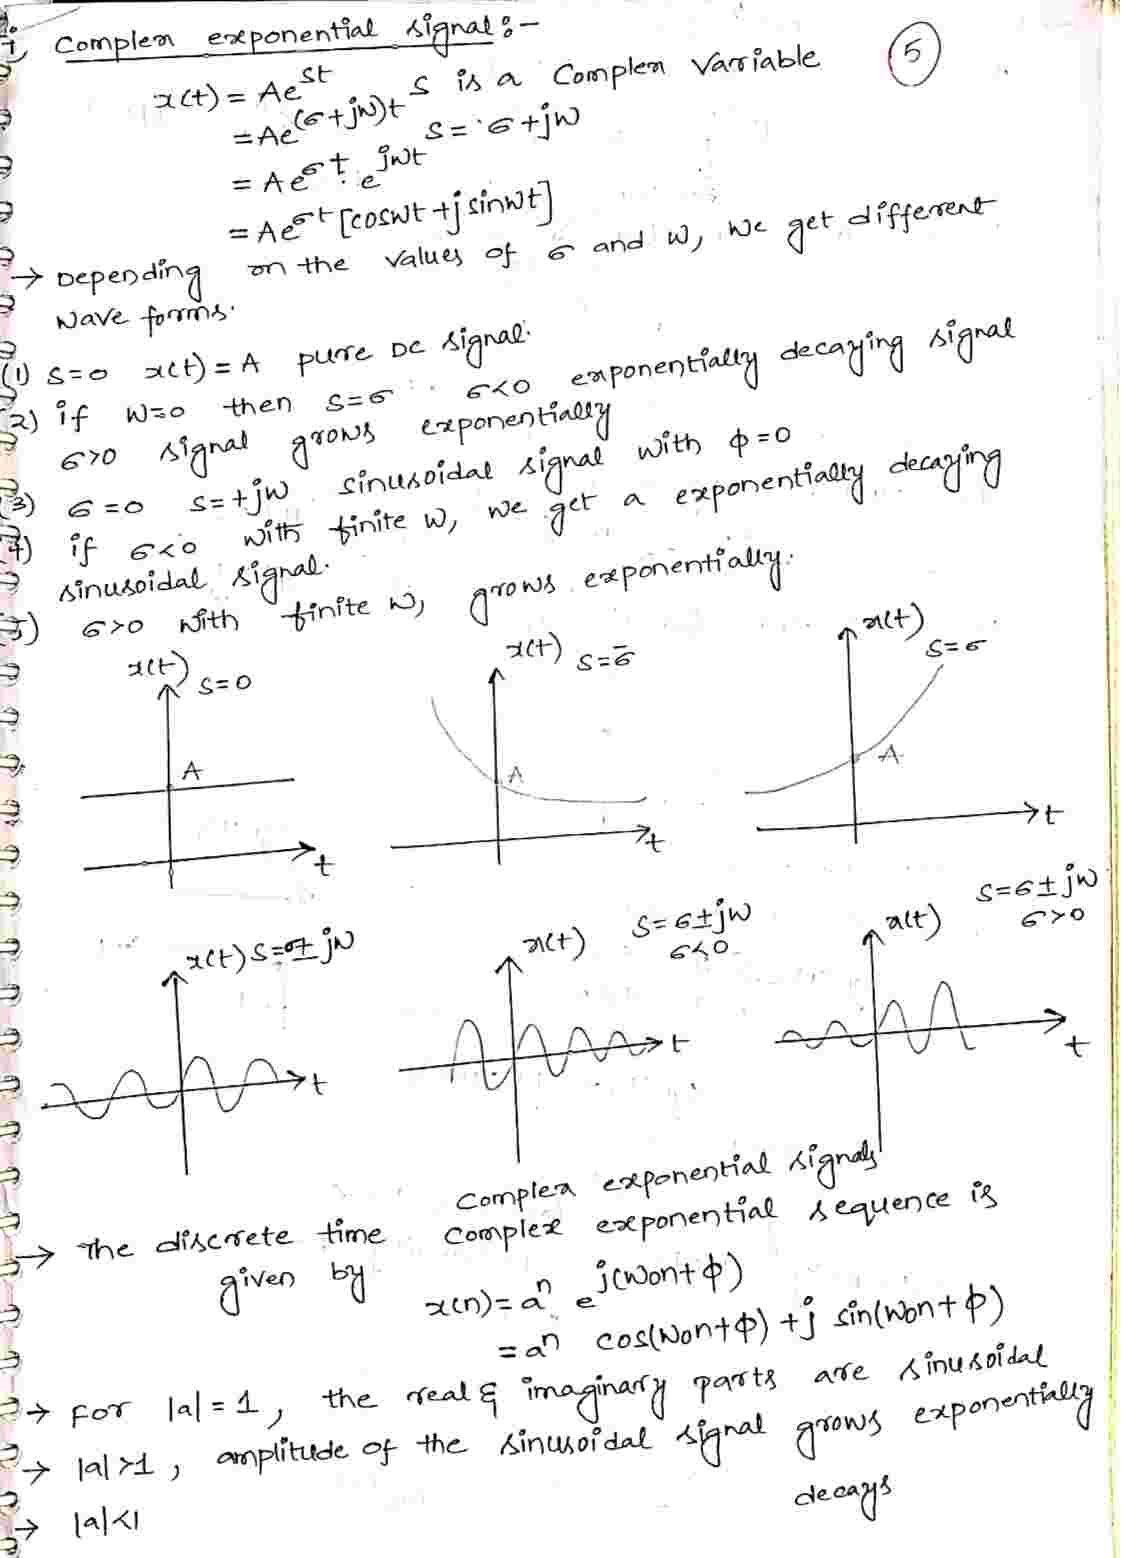 7, Complex exponential signal:-
5
x(t) = Ae^st S is a Complex Variable
= Ae^(σ+jω)t S = σ+jω
= Ae^σt . e^jωt
= Ae^σt [cosωt + j sinωt]
→ Depending on the values of σ and ω, we get different
wave forms.
(1) S=0 x(t) = A pure DC signal.
2) if ω=0 then S=σ σ<0 exponentially decaying signal
σ>0 signal grows exponentially
3) σ=0 S=+jω sinusoidal signal with φ=0
4) if σ<0 with finite ω, we get a exponentially decaying
sinusoidal signal.
5) σ>0 with finite ω, grows exponentially.
x(t) S=0
x(t) S=-σ
x(t) S=σ
A
A
A
t
t
t
x(t) S=σ± jω
x(t) S=σ±jω
σ<0
x(t) S=σ±jω
σ>0
t
t
t
Complex exponential signals
→ The discrete time Complex exponential sequence is
given by
x(n) = a^n e^j(ω0n+φ)
= a^n cos(ω0n+φ) +j sin(ω0n+φ)
→ For |a| = 1, the real & imaginary parts are sinusoidal
→ |a|>1, amplitude of the sinusoidal signal grows exponentially
→ |a|<1 decays